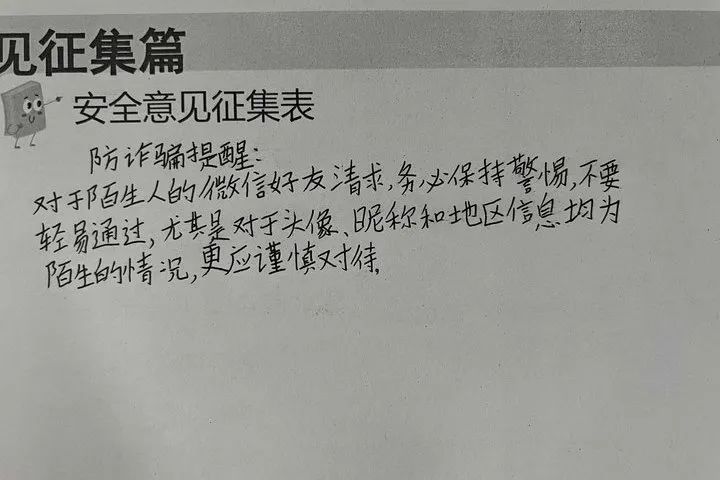 见征集篇
安全意见征集表
防诈骗提醒:
对于陌生人的微信好友请求,务必保持警惕,不要
轻易通过,尤其是对于头像、昵称和地区信息均为
陌生的情况,更应谨慎对待.